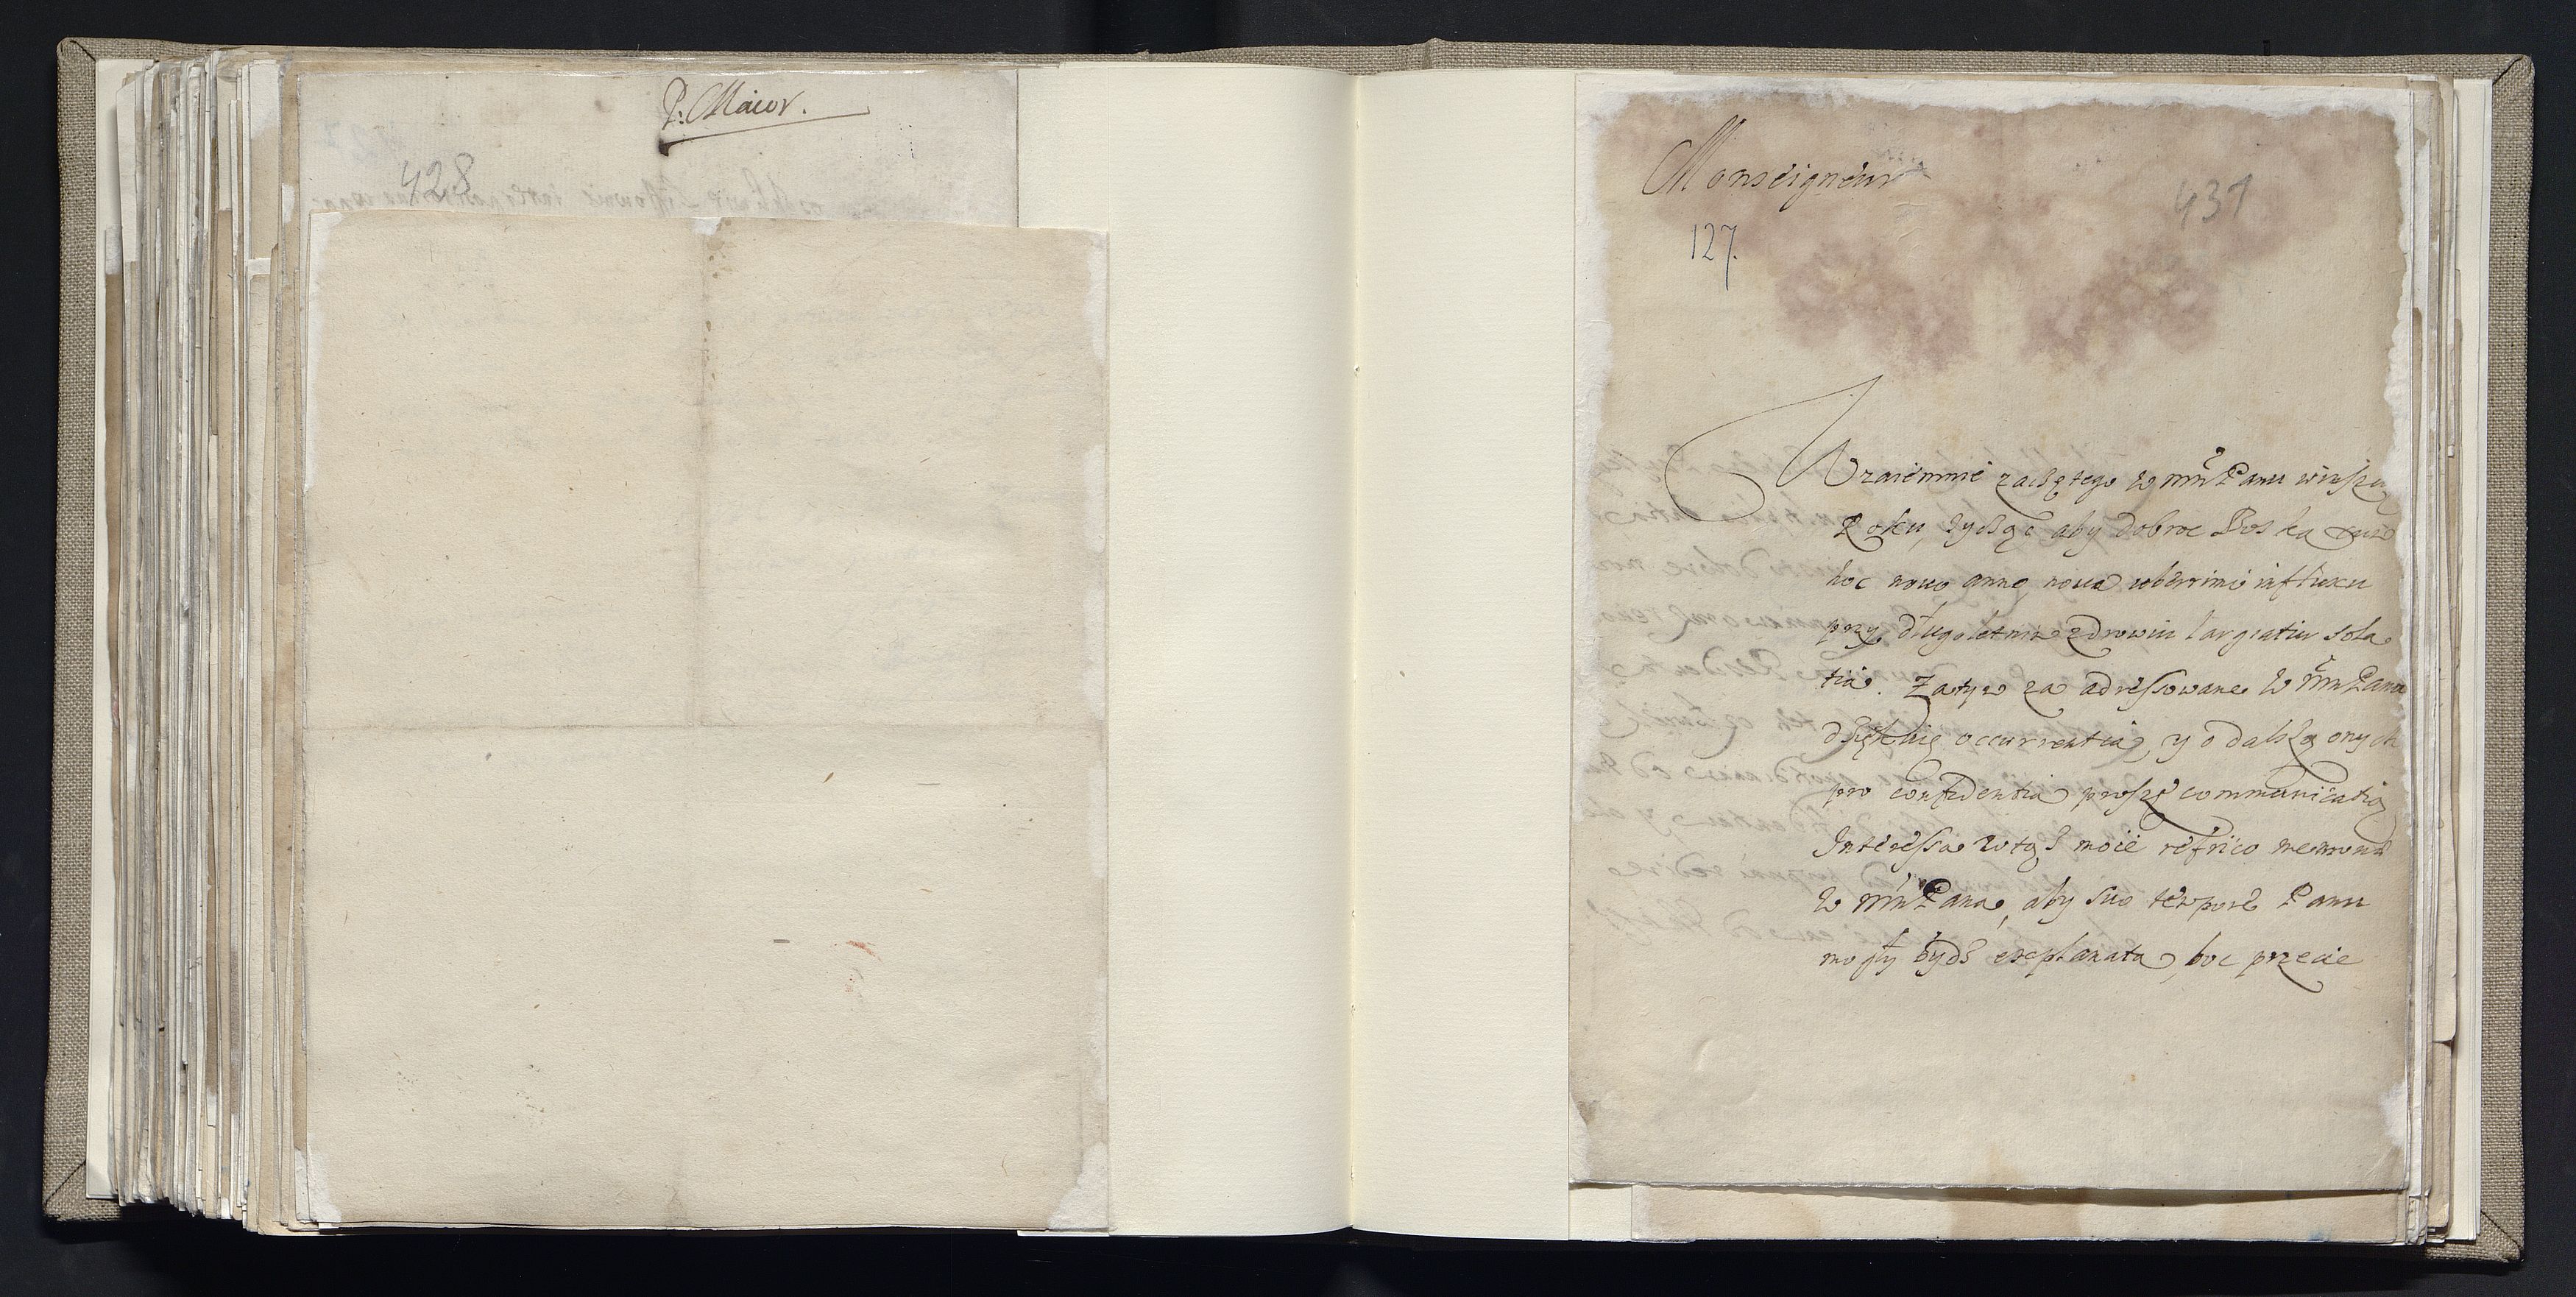 P. Maior.
428
Monseigneur
431
127.
Wzaiemnie zaczętego W Mm Panu winszu
Roku, życząc aby dobroc Boska cum
hoc nouo anno, noua uberrimo influxu
przy długoletnim zdrowiu largiatur sola
tia. Zatym za adressowane W Mm Pana
dziękuię occurrentia, y o dalszą onych
pro confidentia proszę communicatią
Interessa wtąż moie refrico memoriae
W Mm Pana, aby suo tempore Panu
mogły bydź explanata, boc przecie